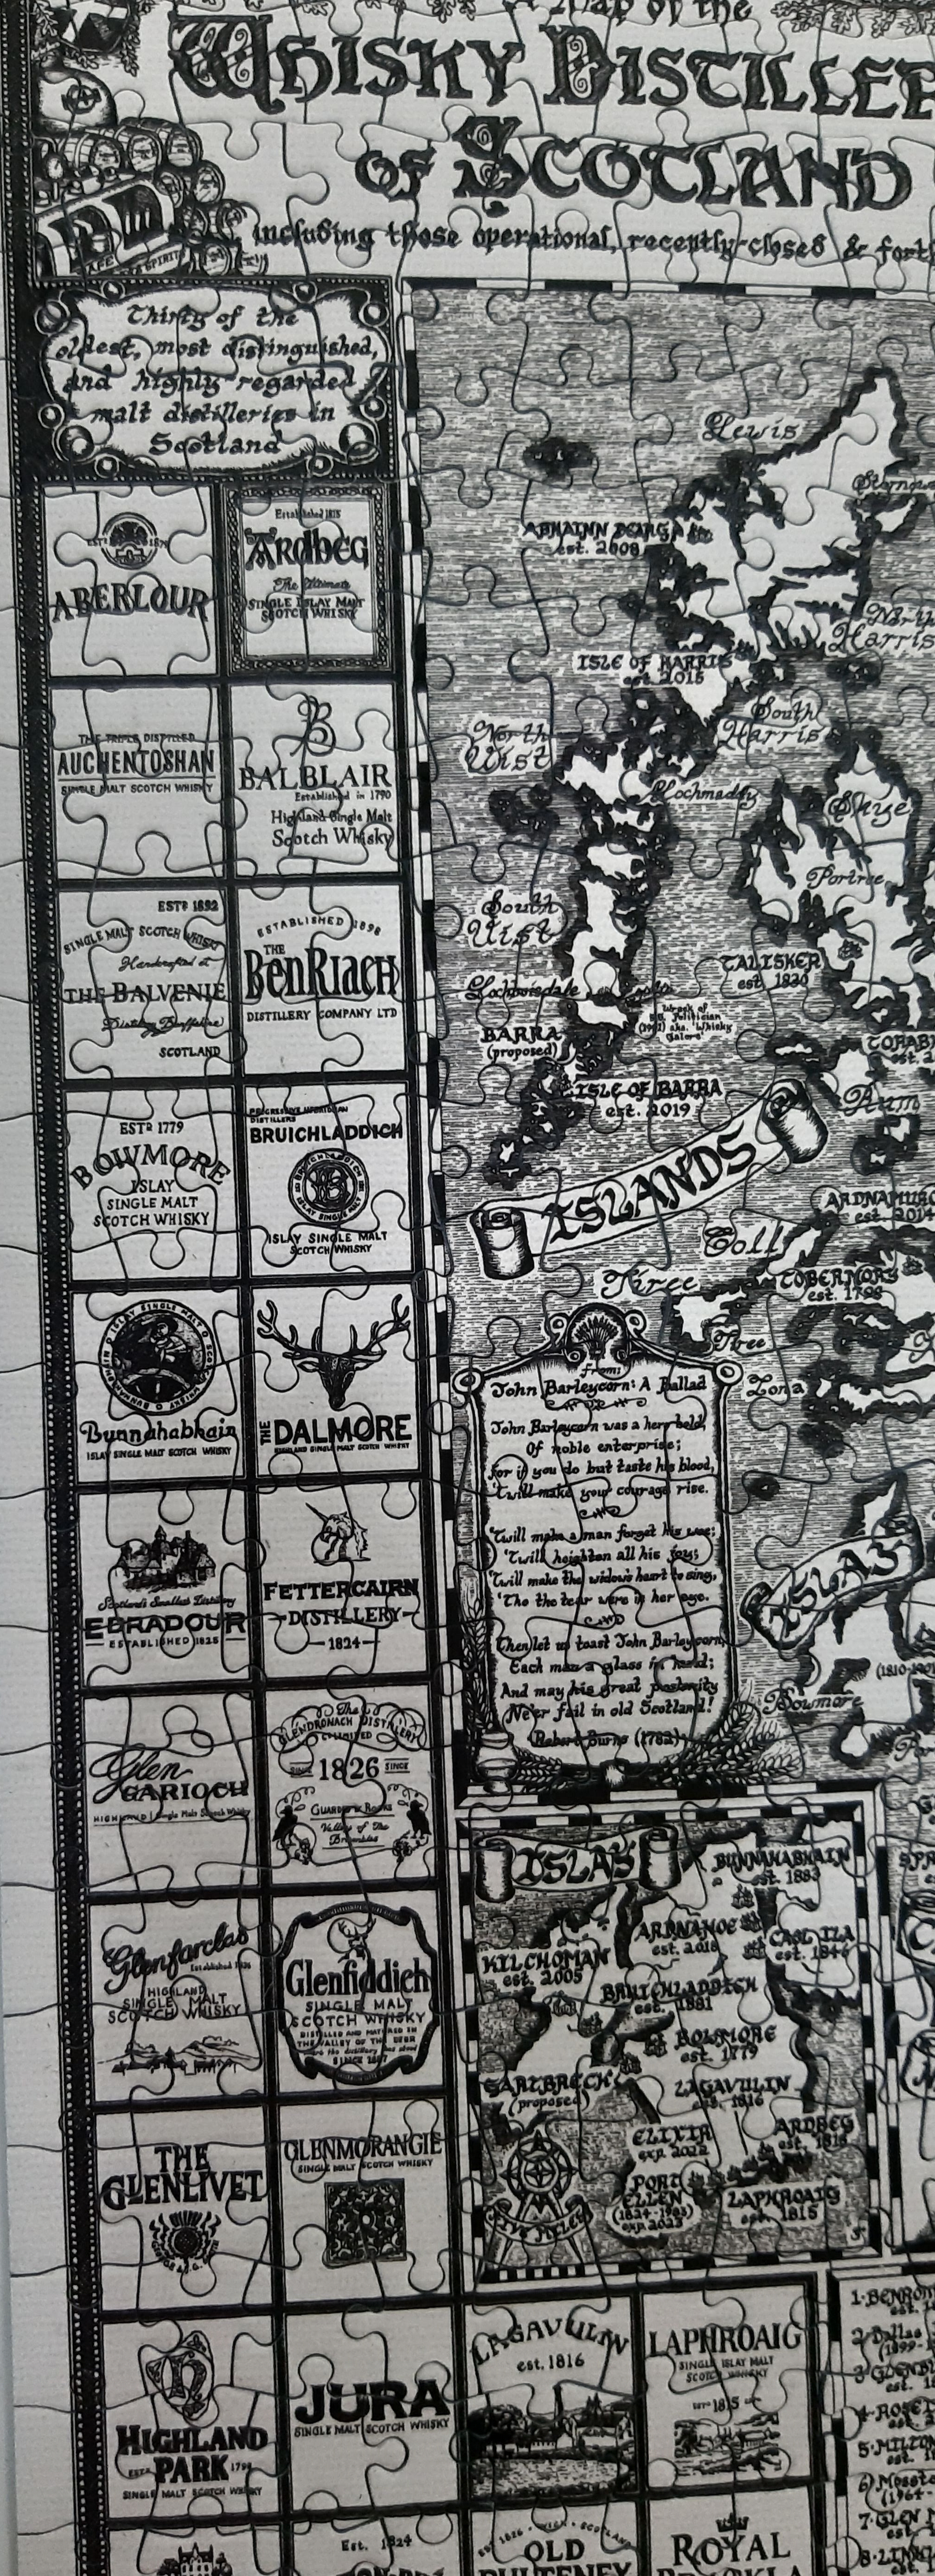 A Map of the
WHISKY DISTILLE
OF SCOTLAND
including those operational, recently-closed & fort
Thirty of the
oldest, most distinguished,
and highly regarded
malt distilleries in
Scotland
ESTD 1879
ABERLOUR
Established 1815
Ardbeg
The Ultimate
SINGLE ISLAY MALT
SCOTCH WHISKY
THE TRIPLE DISTILLED
AUCHENTOSHAN
SINGLE MALT SCOTCH WHISKY
B
BALBLAIR
Established in 1790
Highland Single Malt
Scotch Whisky
ESTD 1892
SINGLE MALT SCOTCH WHISKY
Handcrafted at
THE BALVENIE
Distillery Dufftown
SCOTLAND
ESTABLISHED 1898
THE
BENRIACH
DISTILLERY COMPANY LTD
ESTD 1779
BOWMORE
ISLAY
SINGLE MALT
SCOTCH WHISKY
PROGRESSIVE HEBRIDEAN
DISTILLERS
BRUICHLADDICH
ISLAY SINGLE MALT
SCOTCH WHISKY
Bunnahabhain
ISLAY SINGLE MALT SCOTCH WHISKY
THE DALMORE
HIGHLAND SINGLE MALT SCOTCH WHISKY
Scotland's Smallest Distillery
EDRADOUR
ESTABLISHED 1825
FETTERCAIRN
DISTILLERY
1824
Glen
GARIOCH
HIGHLAND | Single Malt Scotch Whisky
The
GLENDRONACH DISTILLERY
SINCE 1826 SINCE
Guarded by Rooks
Valley of The
Brambles
Glenfarclas
Established 1836
HIGHLAND
SINGLE MALT
SCOTCH WHISKY
Glenfiddich
SINGLE MALT
SCOTCH WHISKY
DISTILLED AND MATURED IN
THE VALLEY OF THE DEER
where the distillery has stood
SINCE 1887
THE
GLENLIVET
GLENMORANGIE
SINGLE MALT SCOTCH WHISKY
HIGHLAND
PARK
ESTD 1798
SINGLE MALT SCOTCH WHISKY
JURA
SINGLE MALT SCOTCH WHISKY
LAGAVULIN
est. 1816
LAPHROAIG
SINGLE ISLAY MALT
SCOTCH WHISKY
ESTD 1815
Est. 1824
EST. 1826 · WICK · SCOTLAND
OLD
PULTENEY
ROYAL
Lewis
Stornow
ABHAINN DEARG
est. 2008
North
Harris
ISLE OF HARRIS
est. 2015
South
Harris
North
Uist
Lochmaddy
Skye
Portree
South
Uist
TALISKER
est. 1830
Lochboisdale
Wreck of
S.S. Politician
(1941) aka. 'Whisky
Galore'
BARRA
(proposed)
TORABH
est. 2
ISLE OF BARRA
est. 2019
Rum
ISLANDS
ARDNAMURC
est. 2014
Coll
Tiree
TOBERMORY
est. 1798
Tiree
Iona
from:
John Barleycorn: A Ballad
John Barleycorn was a hero bold,
Of noble enterprise;
For if you do but taste his blood,
'Twill make your courage rise.
'Twill make a man forget his woe;
'Twill heighten all his joy;
'Twill make the widow's heart to sing,
'Tho the tear were in her eye.
Then let us toast John Barleycorn,
Each man a glass in hand;
And may his great posterity
Ne'er fail in old Scotland!
Robert Burns (1782)
ISLAY
(1810-
Bowmore
ISLAY
BUNNAHABHAIN
est. 1883
ARDNAHOE
est. 2018
CAOL ILA
est. 1846
KILCHOMAN
est. 2005
BRUICHLADDICH
est. 1881
BOWMORE
est. 1779
GARTBRECK
(proposed)
LAGAVULIN
est. 1816
ELIXIR
exp. 2022
ARDBEG
est. 1815
PORT
ELLEN
(1824-1983)
exp. 2023
LAPHROAIG
est. 1815
1·BENROM
2·Dallas
(1899-
3·GLENB
4·ROSE
5·MILTON
6·Mosst
(1964-
7·GLEN
8·LINKW